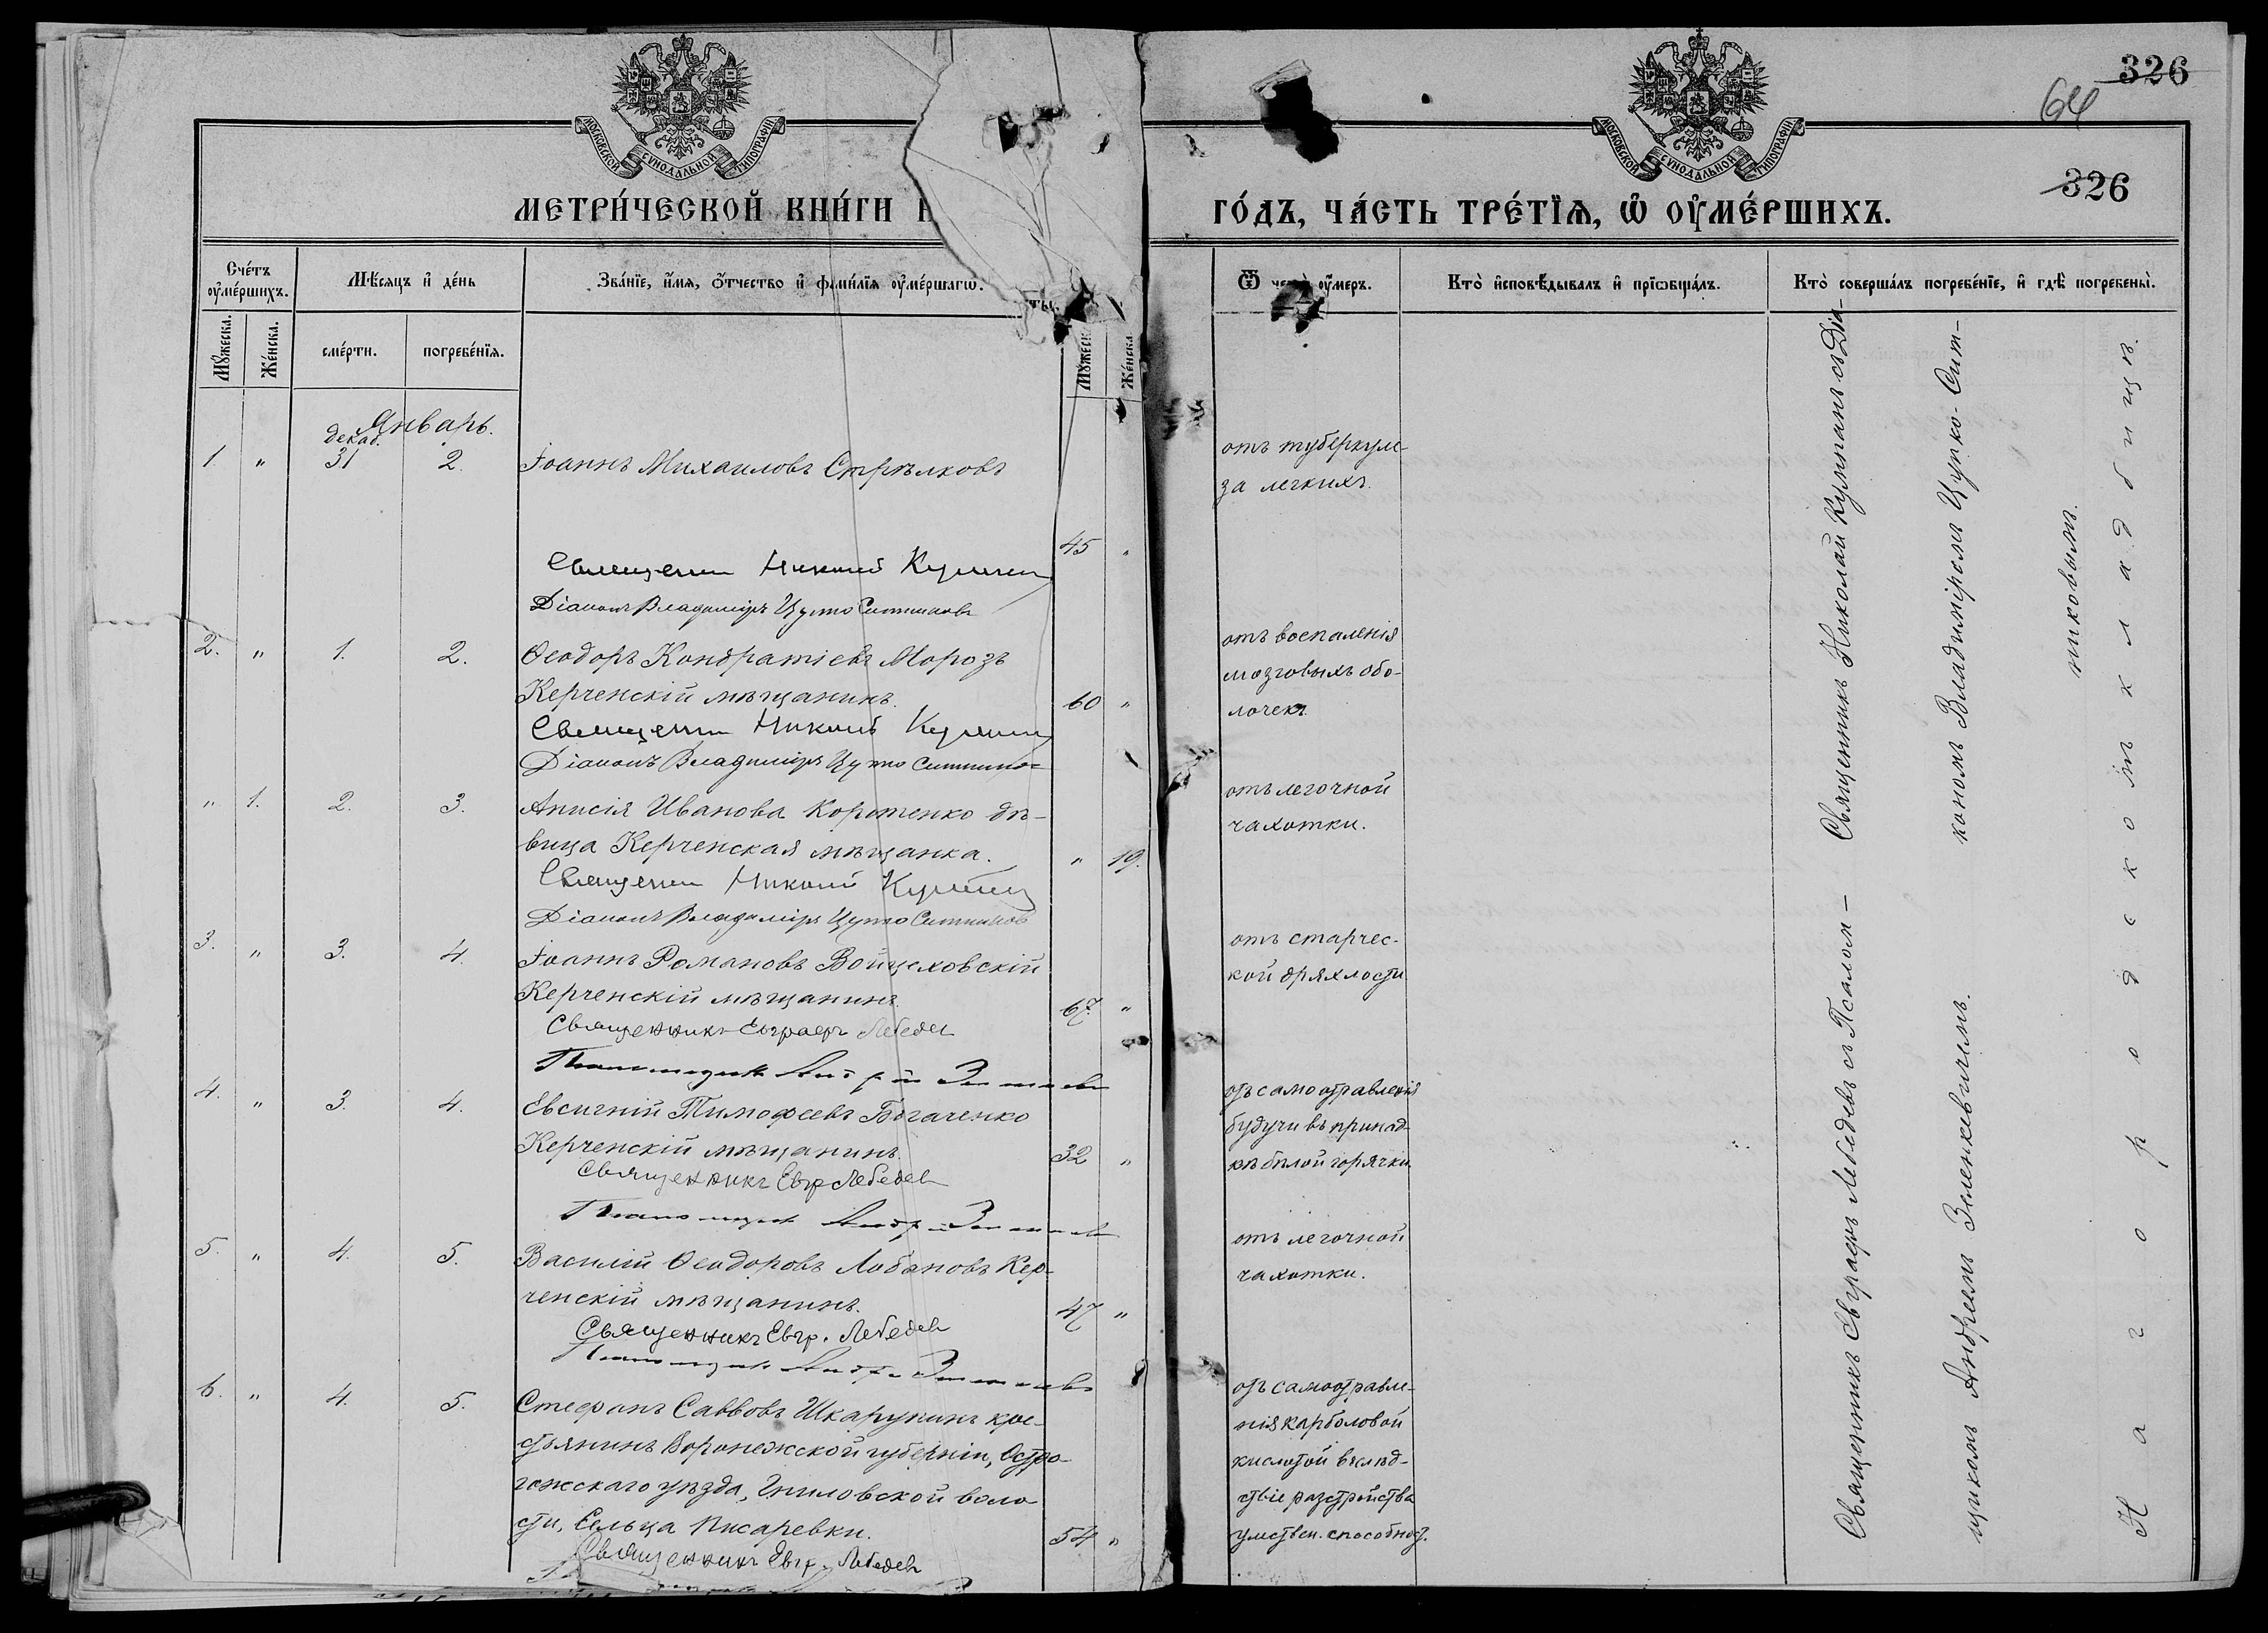 326
64
МОСКОВСКОЙ СѴНОДАЛЬНОЙ ТИПОГРАФІИ
МОСКОВСКОЙ СѴНОДАЛЬНОЙ ТИПОГРАФІИ
326
МЕТРИ́ЧЕСКОЙ КНИ́ГИ
ГО́ДЪ, ЧА́СТЬ ТРЕ́ТЇѦ, Ѡ҆ ОУ҆МЕ́РШИХЪ.
Сче́тъ оу҆ме́ршихъ.
Мѣ́сяцъ и҆ де́нь
Зва́нїе, и҆́мя, ѻ҆́тчество и҆ фами́лїя оу҆ме́ршагѡ.
Ѿ чегѡ̀ оу҆́меръ.
Кто̀ и҆сповѣ́дывалъ и҆ прїѡбща́лъ.
Кто̀ соверша́лъ погребе́нїе, и҆ гдѣ̀ погребены̀.
Мꙋ́жеска.
Же́нска.
сме́рти.
погребе́нїя.
Мꙋ́жеск
Же́нска
Январь.
декаб.
1. " 31 2. Іоаннъ Михаиловъ Стрѣлковъ
45 "
отъ туберкуле-
за легкихъ.
Священник Николай Куш
Діаконъ Владиміръ Цупко Ситников
2. " 1. 2. Ѳеодоръ Кондратіевъ Морозъ
Керченскій мѣщанинъ. 60 "
отъ воспаленія
мозговыхъ обо-
лочекъ.
Священник Николай
Діаконъ Владиміръ Цупко Ситников
" 1. 2. 3. Анисія Иванова Коротенко дѣ-
вица Керченская мѣщанка. " 19.
отъ легочной
чахотки.
Священник Николай
Діаконъ Владиміръ Цупко Ситников
3. " 3. 4. Іоаннъ Романовъ Войцеховскій
Керченскій мѣщанинъ. 67. "
отъ старчес-
кой дряхлости
Священникъ Евграфъ Лебедев
Псаломщикъ Андрей
4. " 3. 4. Евсигній Тимофеевъ Богаченко
Керченскій мѣщанинъ. 32 "
отъ самоотравленія
будучи въ припад-
кѣ бѣлой горячки.
Священникъ Евгр Лебедев
Псаломщикъ Андр
5. " 4. 5. Василій Ѳеодоровъ Лобановъ Кер-
ченскій мѣщанинъ. 47 "
отъ легочной
чахотки.
Священникъ Евгр. Лебедев
Псаломщикъ Андр
6. " 4. 5. Стефанъ Саввовъ Шкарупинъ кре-
стьянинъ Воронежской губерніи, Остро-
гожскаго уѣзда, Гниловской воло-
сти, Сельца Писаревки. 54 "
отъ самоотравле-
нія карболовой
кислотой вслѣд-
ствіе разстройства
умствен. способност.
Священникъ Евгр. Лебедев
Священникъ Николай с Діа-
кономъ Владиміромъ Цупко-Сит-
никовымъ.
Священникъ Евграфъ Лебедевъ съ Псалом-
щикомъ Андреемъ Зеленкевичемъ.
На городскомъ кладбищѣ.